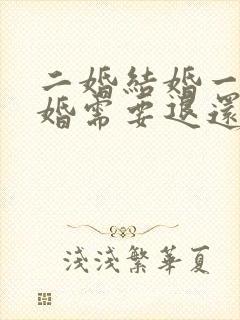 二婚結婚一
婚需要退還
淺淺繁華夏